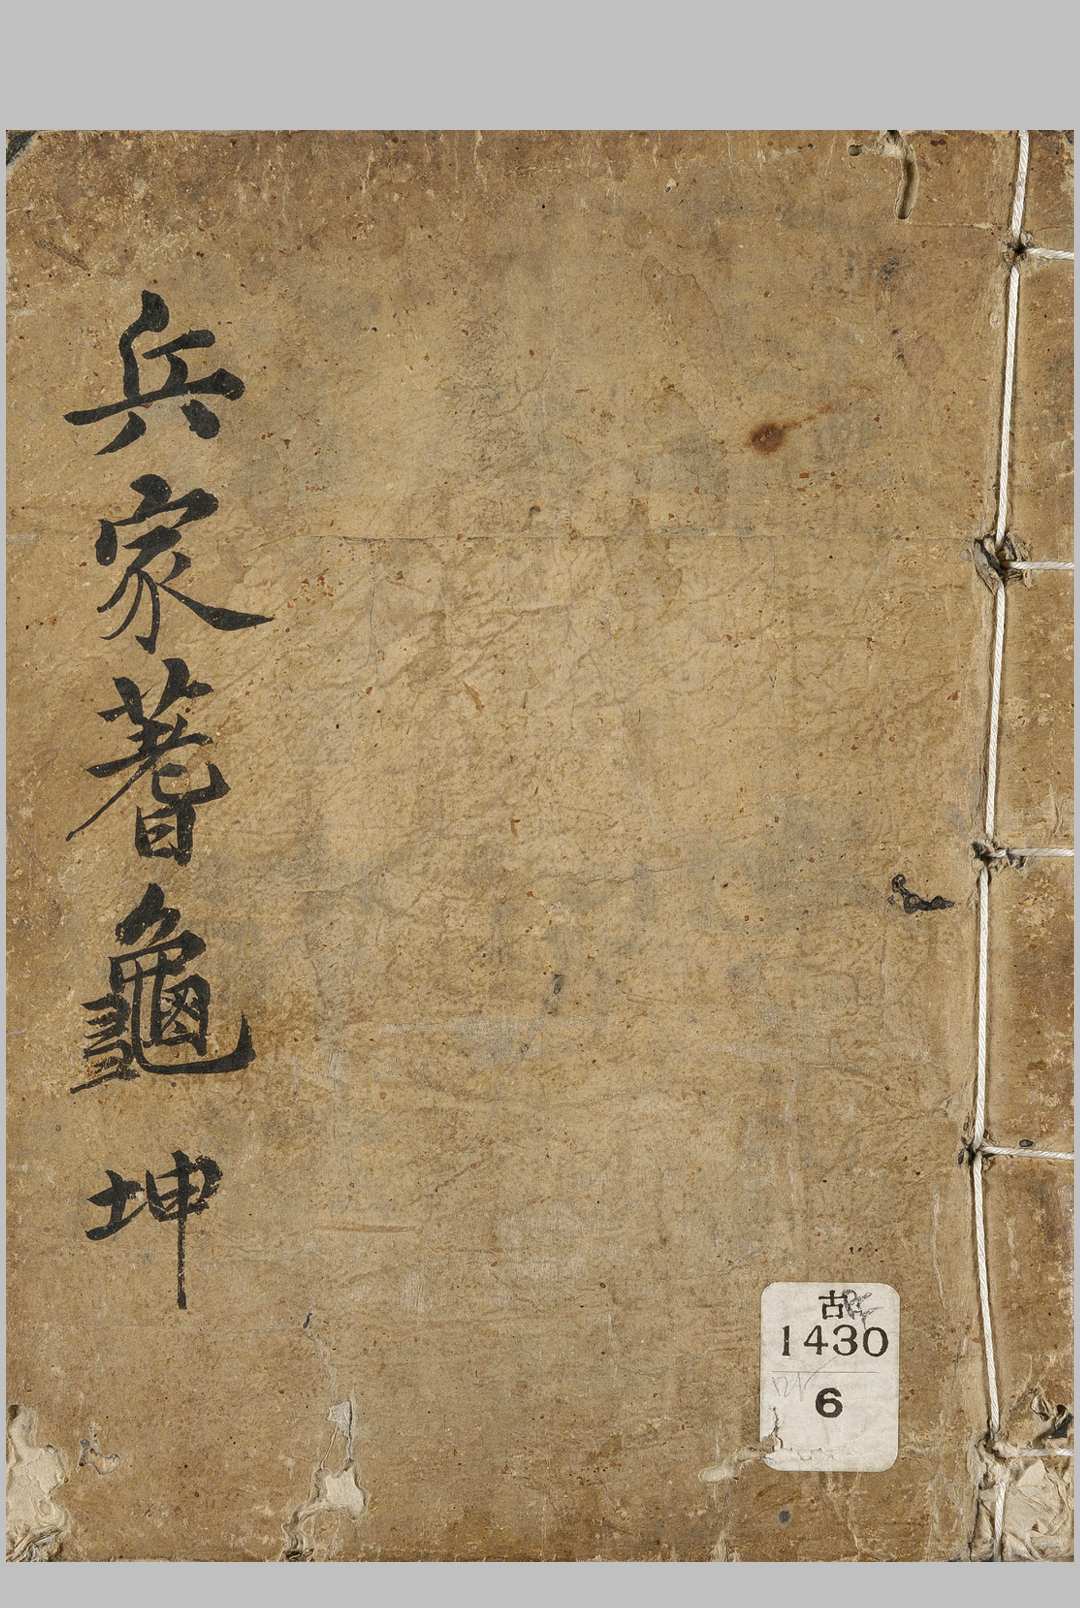 兵家蓍龜 坤
古
1430
6